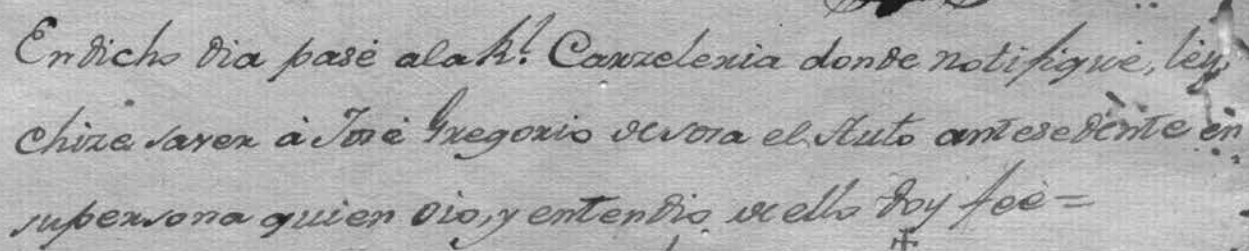 En dicho dia pasé a la Rl. Carzeleria donde notifiqué, léy,
e hize saver à José Gregorio el Auto antesedente en
su persona quien oio, y entendio de ello doy feé =